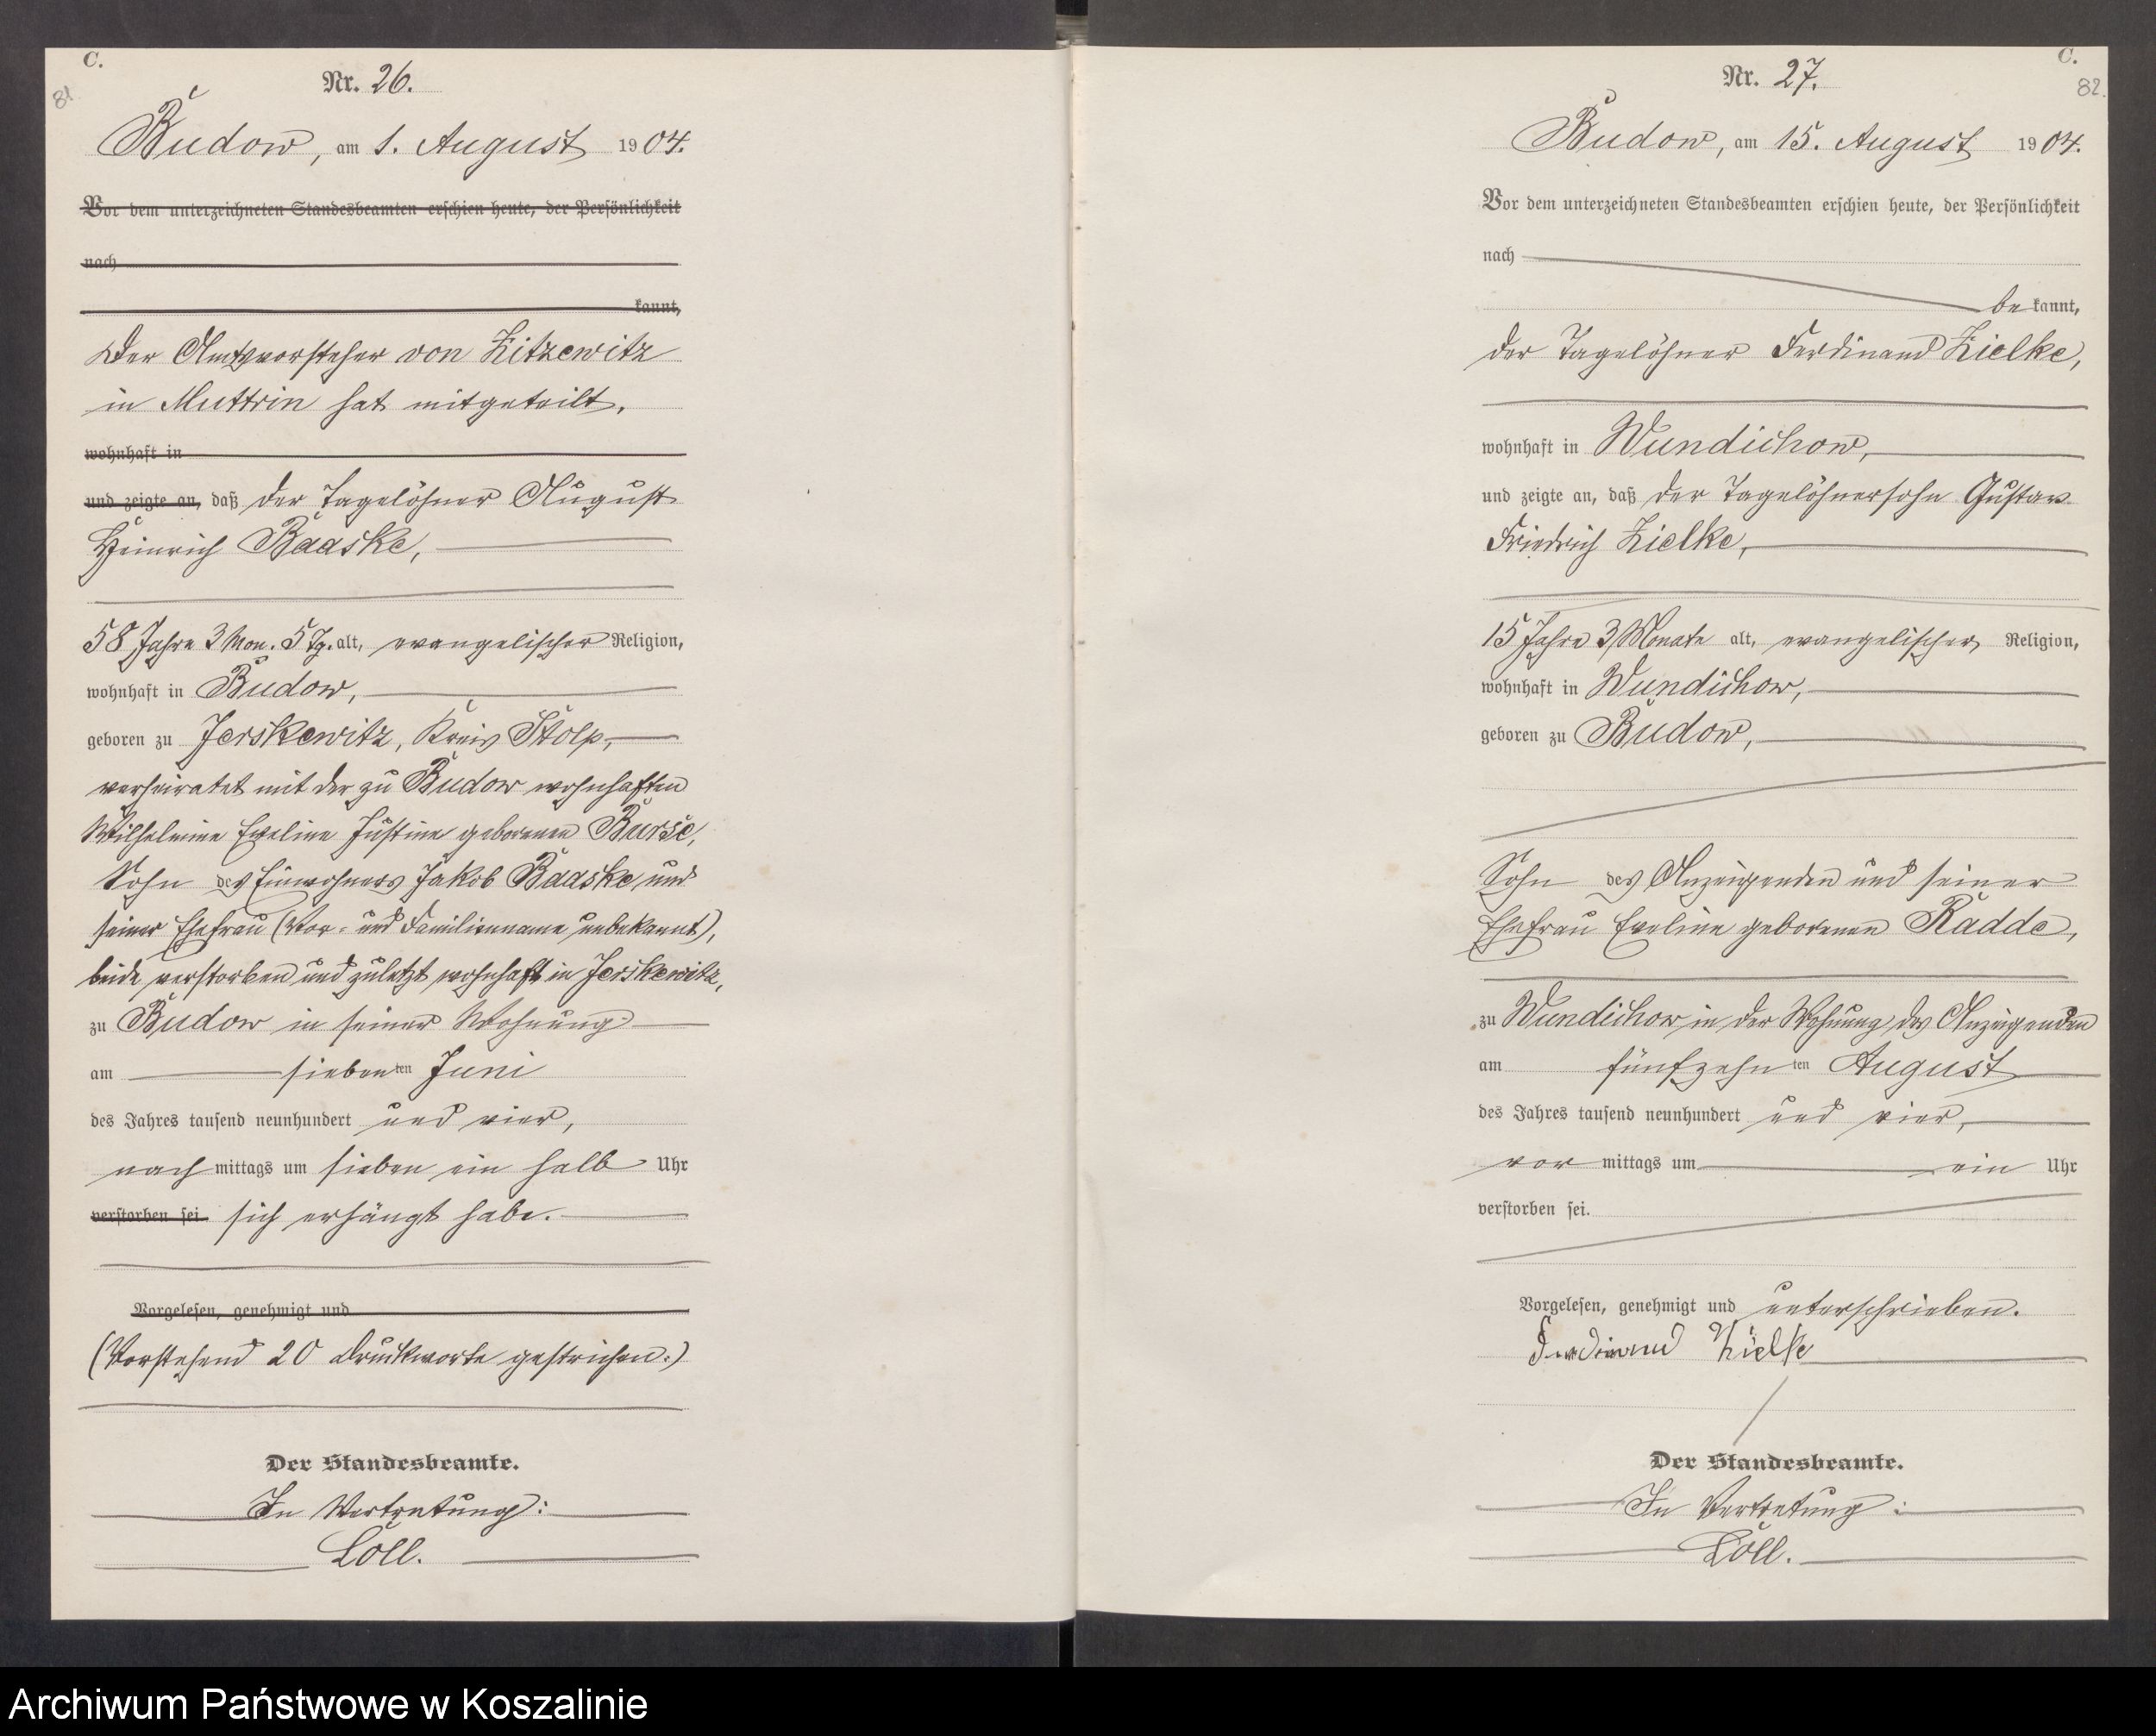 C.
81.
Nr. 26.
Budow, am 1. August 1904.
Vor dem unterzeichneten Standesbeamten erschien heute, der Persönlichkeit
nach
kannt,
Der Amtsvorsteher von Zitzewitz
in Muttrin hat mitgeteilt,
wohnhaft in
und zeigte an, daß der Tagelöhner August
Heinrich Baaske,
58 Jahre 3 Mon. 5 Tg. alt, evangelischer Religion,
wohnhaft in Budow,
geboren zu Jerskewitz, Kreis Stolp,
verheiratet mit der zu Budow wohnhaften
Wilhelmine Eveline Justine geborenen Burse,
Sohn des Einwohners Jakob Baaske und
seiner Ehefrau (Vor- und Familienname unbekannt),
beide verstorben und zuletzt wohnhaft in Jerskewitz,
zu Budow in seiner Wohnung
am siebenten Juni
des Jahres tausend neunhundert und vier,
nachmittags um sieben ein halb Uhr
verstorben sei sich erhängt habe.
Vorgelesen, genehmigt und
(Vorstehend 20 Druckworte gestrichen.)
Der Standesbeamte.
In Vertretung:
Löll.
C.
82.
Nr. 27.
Budow, am 15. August 1904.
Vor dem unterzeichneten Standesbeamten erschien heute, der Persönlichkeit
nach
bekannt,
der Tagelöhner Ferdinand Zielke,
wohnhaft in Wundichow,
und zeigte an, daß der Tagelöhnersohn Gustav
Friedrich Zielke,
15 Jahre 3 Monate alt, evangelischer Religion,
wohnhaft in Wundichow,
geboren zu Budow,
Sohn des Anzeigenden und seiner
Ehefrau Eveline geborenen Radde,
zu Wundichow in der Wohnung des Anzeigenden
am fünfzehnten August
des Jahres tausend neunhundert und vier,
vormittags um ein Uhr
verstorben sei.
Vorgelesen, genehmigt und unterschrieben.
Ferdinand Zielke
Der Standesbeamte.
In Vertretung:
Löll.
Archiwum Państwowe w Koszalinie